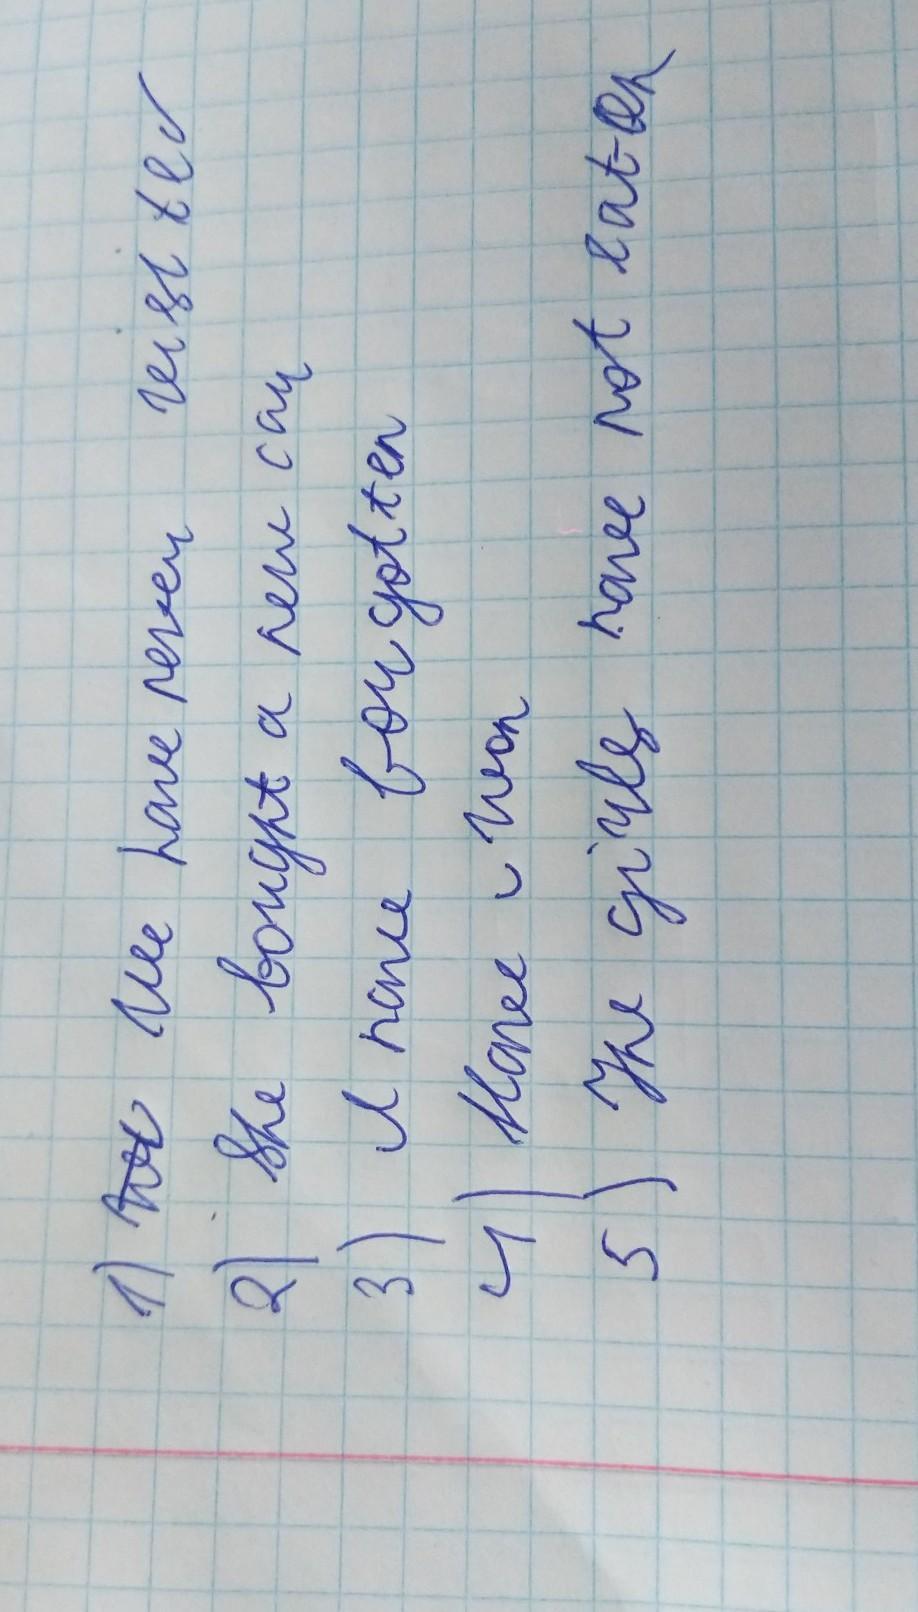 1) We have never visited
2) She bought a new car
3) I have forgotten
4) Have i won
5) The girls have not eaten